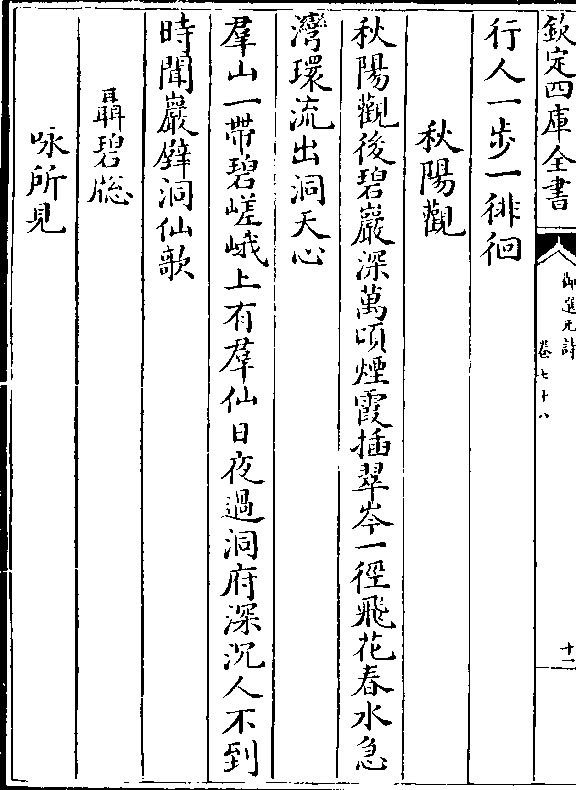 欽定四庫全書
御選元詩
卷七十八
十二
行人一步一徘徊
秋陽觀
秋陽觀後碧巖深萬頃煙霞插翠岑一徑飛花春水急
灣環流出洞天心
羣山一帶碧嵯峨上有羣仙日夜過洞府深沉人不到
時聞巖壁洞仙歌
聶碧牎
咏所見